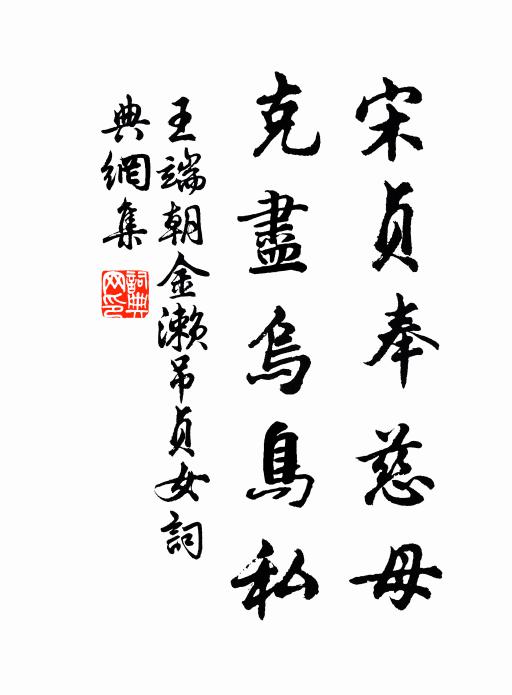 宋贞奉慈母
克盡烏鳥私
王端朝金瀨吊貞女詞
典網集
詞典網印